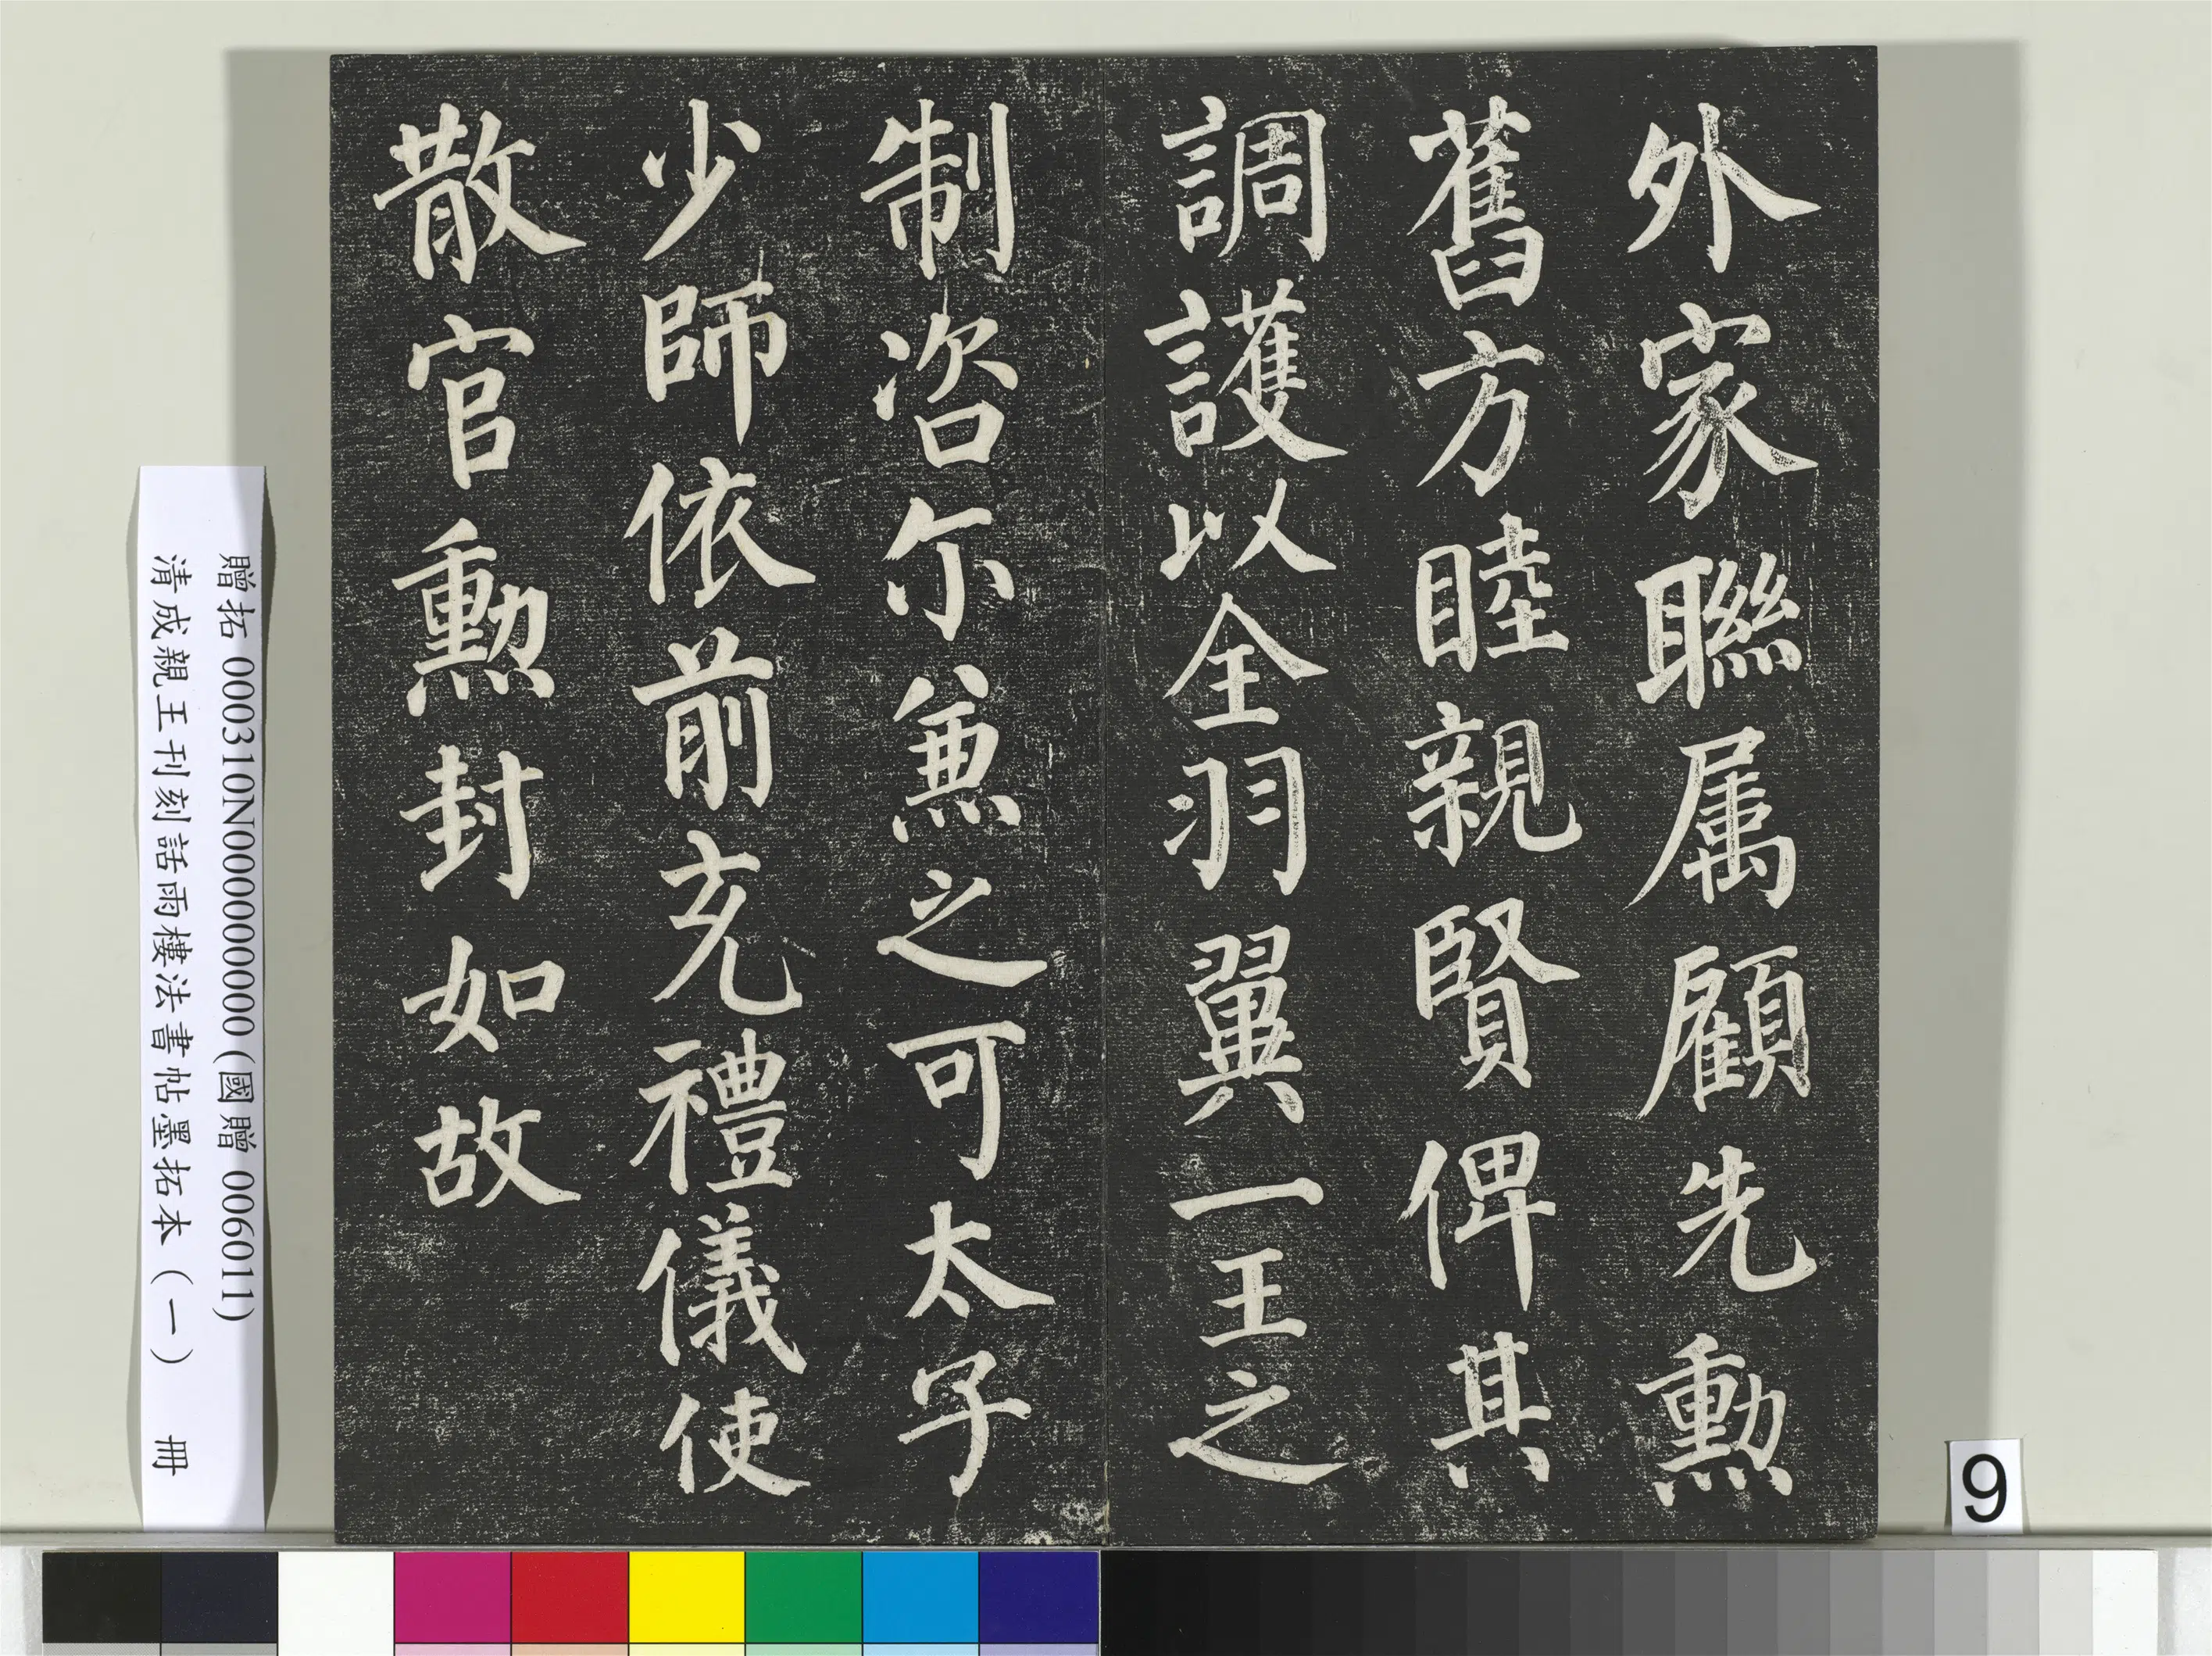 外家聯属顧先勳
舊方睦親賢俾其
調護以全羽翼一王之
制咨尓兼之可太子
少師依前充禮儀使
散官勳封如故
贈拓 000310N000000000 (國贈 006011)
清成親王刊刻話雨樓法書帖墨拓本（一） 冊
9